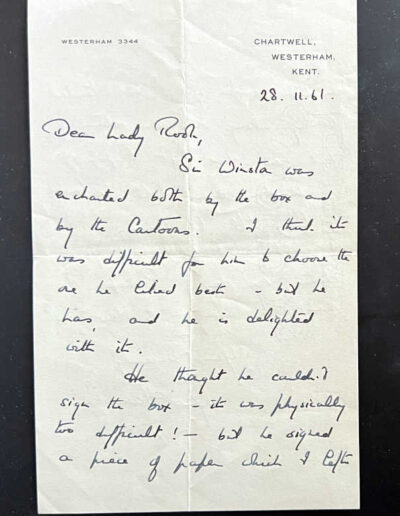 WESTERHAM 3344
CHARTWELL,
WESTERHAM,
KENT.
28. 11. 61.
Dear Lady Rook,
Sir Winston was
enchanted both by the box and
by the Cartoons. I think it
was difficult for him to choose the
one he liked best - but he
has, and he is delighted
with it.
He thought he couldn't
sign the box - it was physically
too difficult! - but he signed
a piece of paper which I left